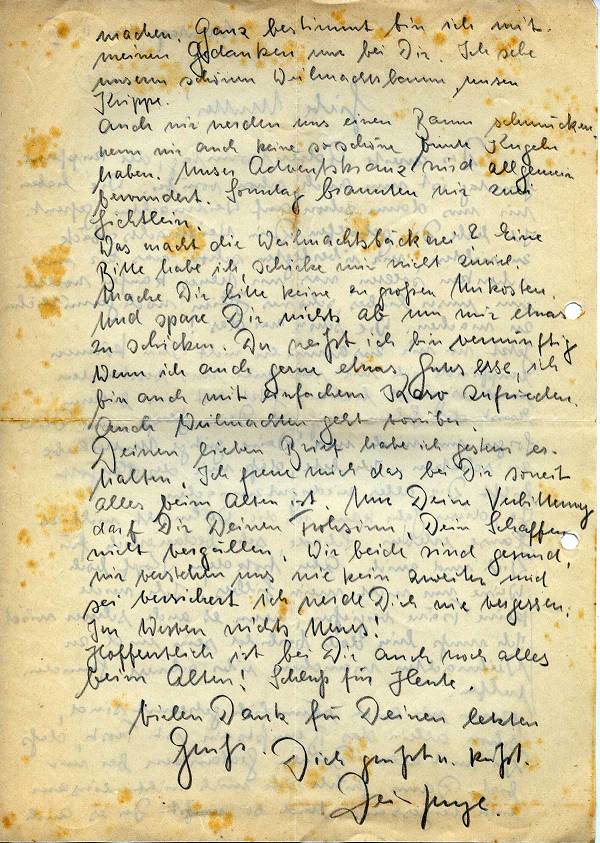 machen. Ganz bestimmt bin ich mit
meinen Gedanken nur bei Dir. Ich sehe
unseren schönen Weihnachtsbaum, unsere
Krippe.
Auch wir werden uns einen Baum schmücken
wenn wir auch keine so schöne bunte Kugeln
haben. Unser Adventskranz wird allgemein
bewundert. Sonntag brannten wir zwei
Lichtlein.
Was macht die Weihnachtsbäckerei? Eine
Bitte habe ich, schicke mir nicht zuviel
Mache Dir bitte keine zu großen Unkosten.
Und spare Dir nichts ab um mir etwas
zu schicken. Du weißt ich bin vernünftig
Wenn ich auch gerne etwas Gutes esse, ich
bin auch mit einfachem zufrieden.
Auch Weihnachten geht vorüber.
Deinen lieben Brief habe ich gestern er-
halten. Ich freue mich das bei Dir soweit
alles beim Alten ist. Nur Deine Verbitterung
darf Dir Deinen Frohsinn, Dein Schaffen
nicht vergällen. Wir beide sind gesund,
wir verstehen uns wie kein zweiter und
sei versichert ich werde Dich nie vergessen.
Im Westen nichts Neues!
Hoffentlich ist bei Dir auch noch alles
beim Alten! Schluß für Heute.
Vielen Dank für Deinen letzten
Gruß. Dich grüßt u. küßt.
Dein